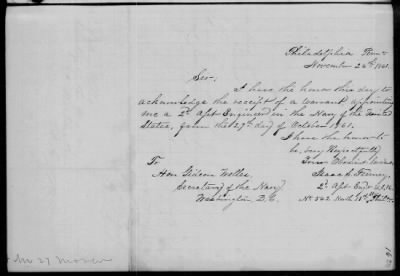 Philadelphia Penna
November 26th 1861.
Sir:
I have the honor this day to
acknowledge the receipt of a warrant appointing
me a 2d Asst Engineer in the Navy of the United
States, from the 29th day of October 1861.
I have the honor to
be, very Respectfully
Your Obedient Servant
Isaac S. Finney,
2d Asst Engr U.S.N.
No 542 North 11th St Phila
To
Hon Gideon Welles,
Secretary of the Navy,
Washington D.C.